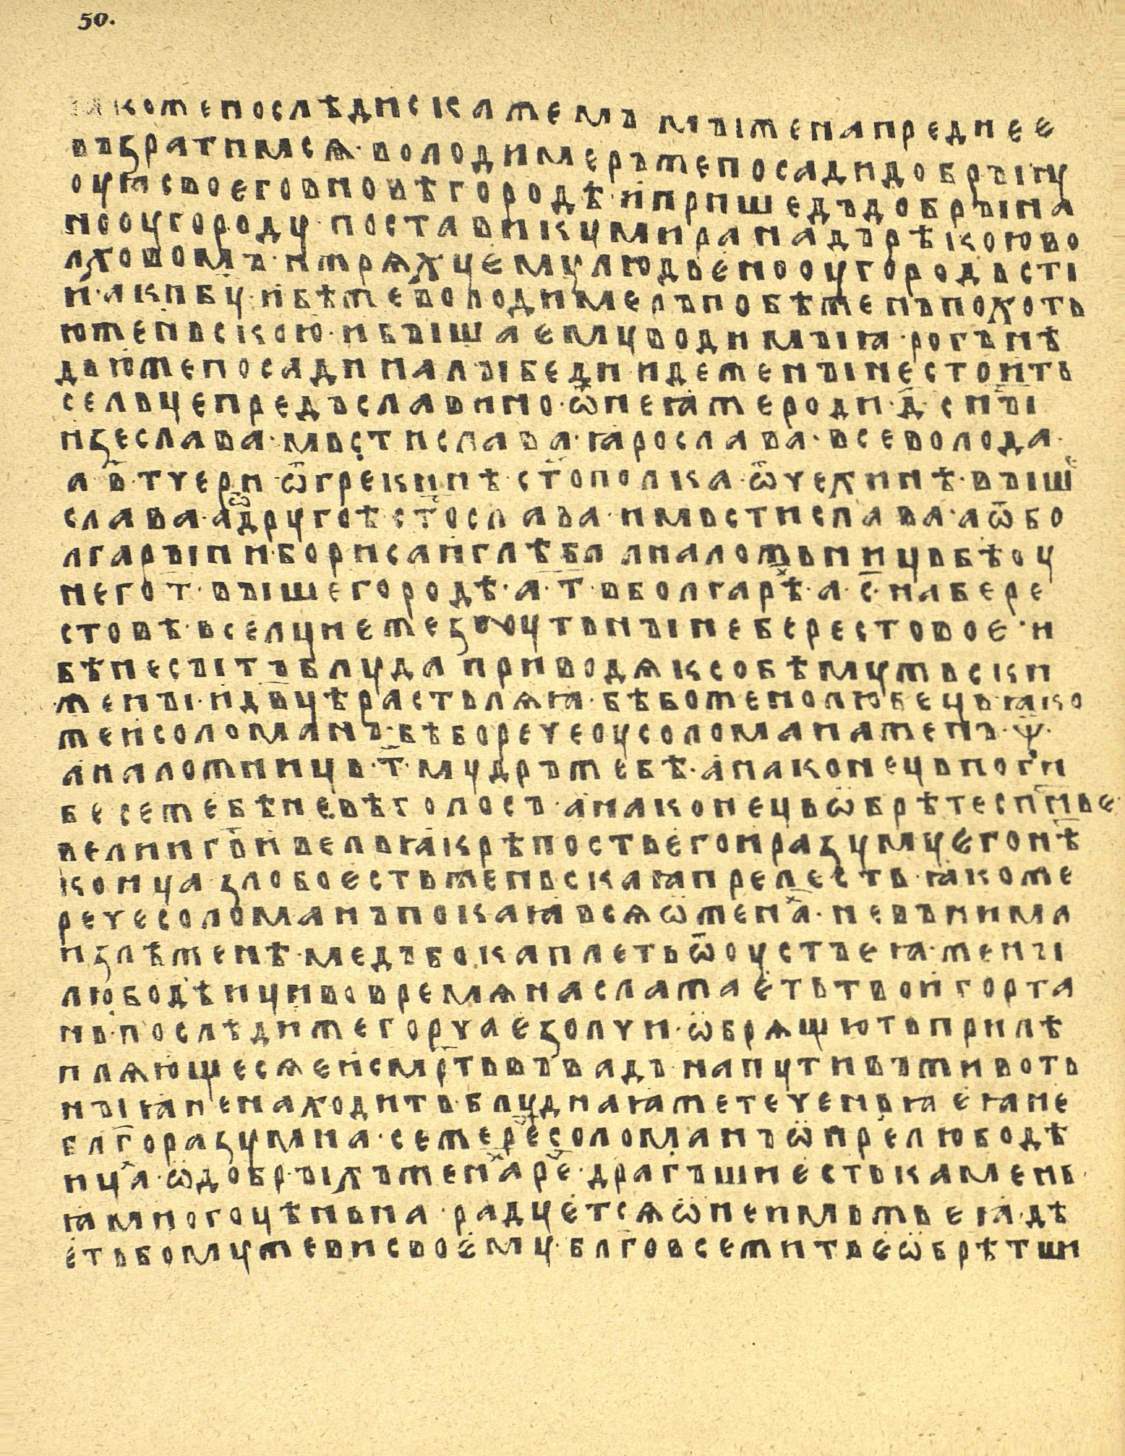 50.
ꙗкожепослѣдискажемъ мъіженапреднее
възратимсѧ·володимеръжепосадидобръіну
оуꙗсвоеговновѣгородѣ·ипришедъдобръіна
нооугороду·поставикумиранадърѣкоюво
лховомъ·ижрѧхуемулюдьенооугородьстї
и·акибу·ибѣжеволодимеръпобѣженъпохоть
юженьскою·ибъішаемуводимъіꙗ·рогънѣ
дьюжепосадиналъібеди идеженъінестоить
сельцепредъславино·ѿнеꙗжероди·д҃·сн҃ъі
изеслава·мьстислава·ꙗрослава·всеволода·
а·в҃·тчери·ѿгрекинѣ·ст҃ополка·ѿчехинѣ·въіше
слава·аѿдругоѣст҃ослава·имьстислава·аѿбо
лгаръіни·борисаиглѣба налажьницьбѣоу
него·т҃·въішегородѣ·а·т҃·вболгарѣх·а·с҃·набере
стовѣ·вселцижезовутьнъінеберестовое·и
бѣнесъітъблуда приводѧксобѣмужьски
женъі·идв҃цѣрастьлѧꙗ·бѣбоженолюбецьꙗко
жеисоломанъ·бѣборечеоусоломанаженъ·ѱ҃·
аналожницъ·т҃·мудръжебѣ·анаконецьпоги
бесежебѣневѣголосъ·анаконецьѡбрѣтесп҃нье
велиигь҃ивельꙗкрѣпостьегоиразумуегонѣ
конца злобоестьженьскаꙗпрелесть·ꙗкоже
речесоломанъпокаꙗвъсѧѡжена҃х·невънима
излѣженѣ·медъбокаплетьѿоустъеꙗ·женъі
любодѣицивовремѧнаслажаетьтвоигорта
нь·послѣдижегорчаезолчи·ѡбрѧщютьприлѣ
плѧющесѧеисмр҃тьвъвадъ·напутивъживоть
нъіꙗненаходитьблуднаꙗжетеченьꙗеꙗне
бл҃горазумна·сежереч҃есоломанъѡпрелюбодѣ
ица҃х·ѡдобръіхъжена҃хреч҃·драгъшиестькамень
ꙗмногоцѣньна·радуетсѧѡнеимъжьеꙗ·дѣ
етьбомужевисвоему·бл҃говсежитьеѡбрѣтши